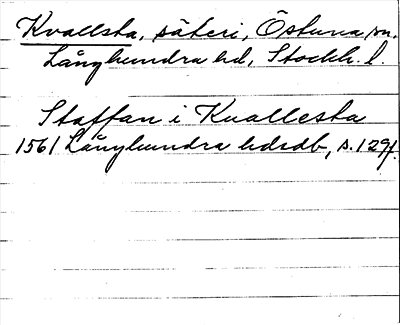 Kvallsta, säteri, Östuna sn.
Långhundra hd, Stockh. l.
Staffan i Kuallesta
1561 Långhundra hdsdb, s. 129f.